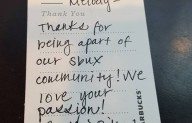 Melody
Thank You
Thanks for
being apart of
our sbux
community! We
love your
passion!
RBUCKS